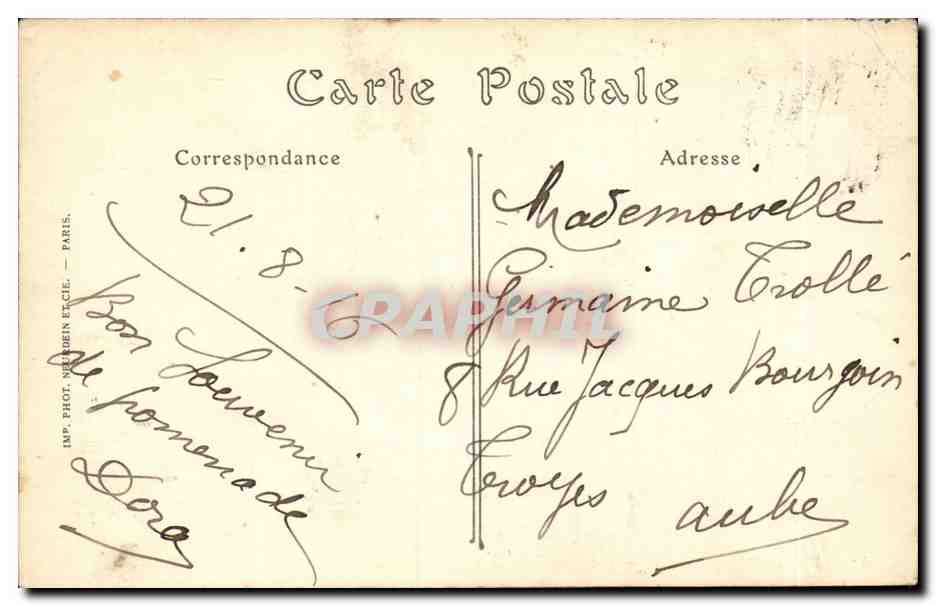 Carte Postale
Correspondance
Adresse
21.8-6
Bon Souvenir
de promenade
Dora
Mademoiselle
Germaine Trollé
8 Rue Jacques Bourgoin
Troyes
aube
IMP. PHOT. NEURDEIN ET CIE. — PARIS.
CPAPHIL